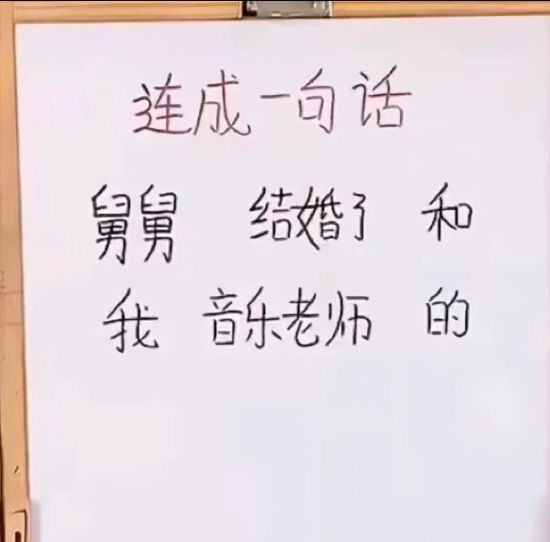 连成一句话
舅舅 结婚了 和
我 音乐老师 的